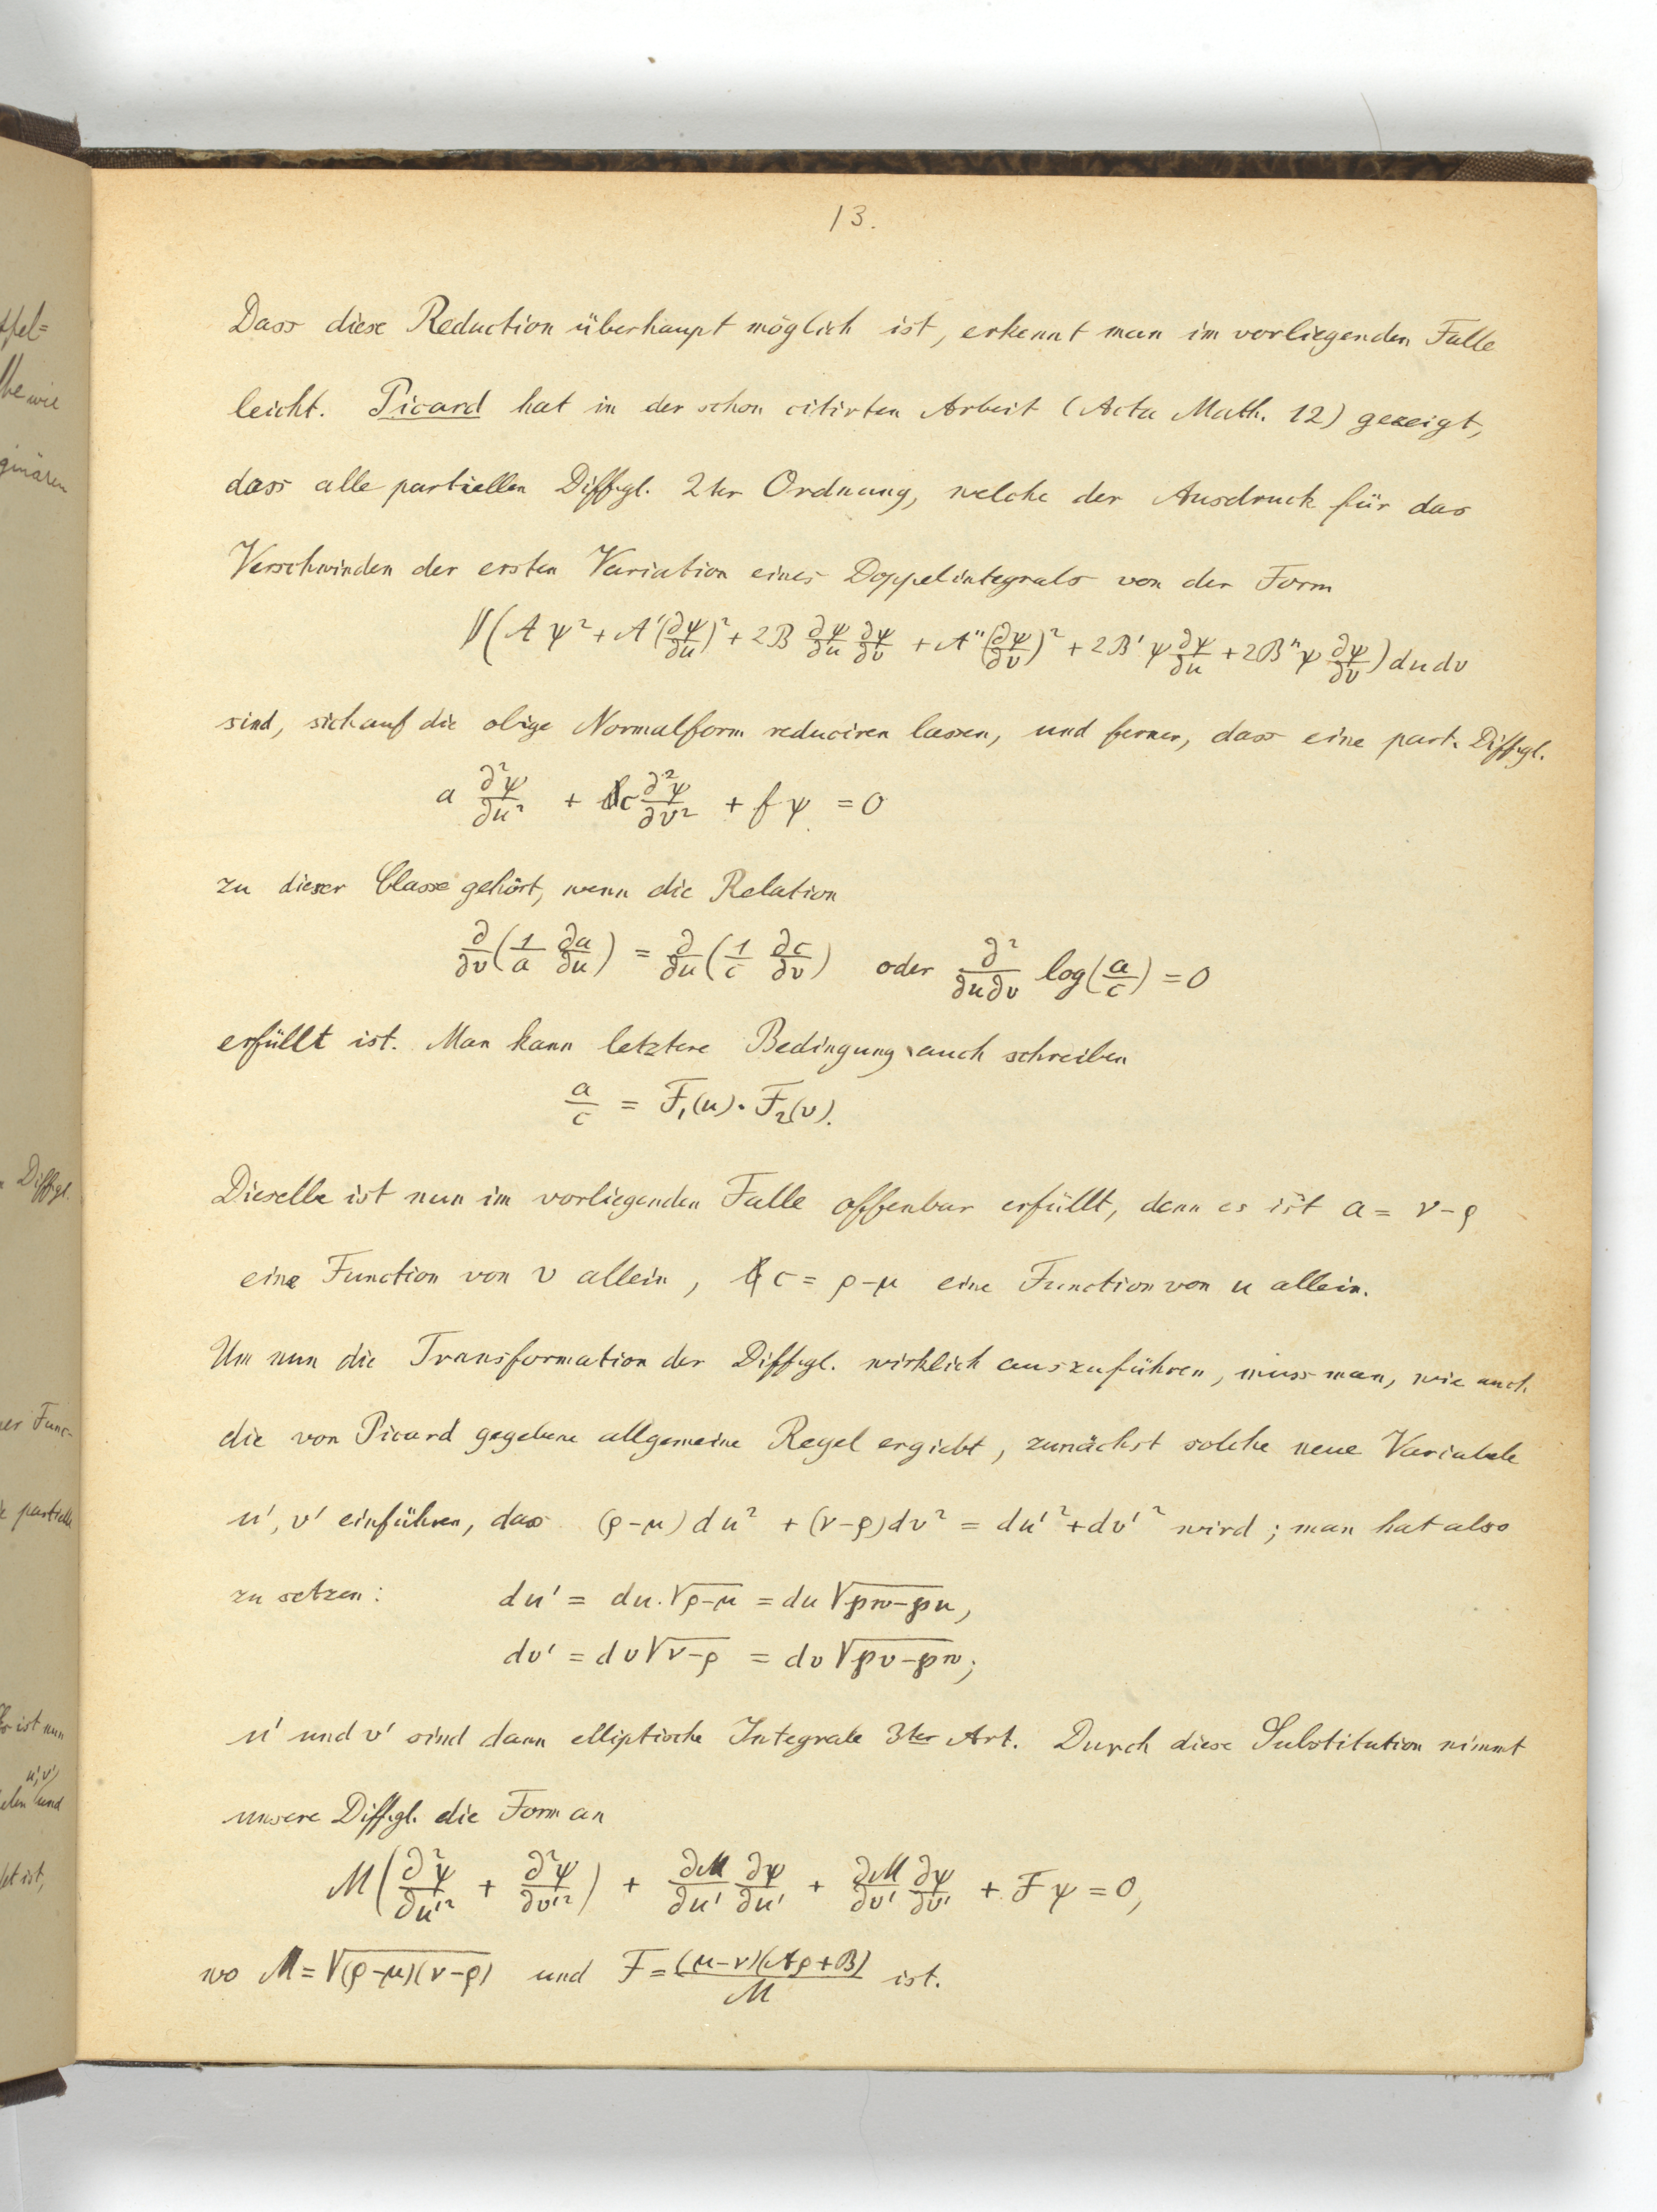 13.
Dass diese Reduction überhaupt möglich ist, erkennt man im vorliegenden Falle
leicht. Picard hat in der schon citirten Arbeit (Acta Math. 12) gezeigt,
dass alle partiellen Diffgl. 2ter Ordnung, welche der Ausdruck für das
Verschwinden der ersten Variation eines Doppelintegrals von der Form
∫∫(A ψ² + A′(∂ψ/∂u)² + 2B ∂ψ/∂u ∂ψ/∂v + A″(∂ψ/∂v)² + 2B′ ψ ∂ψ/∂u + 2B″ ψ ∂ψ/∂v) du dv
sind, sich auf die obige Normalform reduciren lassen, und ferner, dass eine part. Diffgl.
a ∂²ψ/∂u² + c ∂²ψ/∂v² + f ψ = 0
zu dieser Classe gehört, wenn die Relation
∂/∂v (1/a ∂a/∂u) = ∂/∂u (1/c ∂c/∂v) oder ∂²/∂u∂v log(a/c) = 0
erfüllt ist. Man kann letztere Bedingung auch schreiben
a/c = F₁(u) · F₂(v).
Dieselbe ist nun im vorliegenden Falle offenbar erfüllt, denn es ist a = ν-ρ
eine Function von v allein, c = ρ-μ eine Function von u allein.
Um nun die Transformation der Diffgl. wirklich auszuführen, muss man, wie auch
die von Picard gegebene allgemeine Regel ergiebt, zunächst solche neue Variabele
u′, v′ einführen, das (ρ-μ) du² + (ν-ρ) dv² = du′² + dv′² wird; man hat also
zu setzen: du′ = du. √(ρ-μ) = du √(℘w-℘u),
dv′ = dv √(ν-ρ) = dv √(℘v-℘w);
u′ und v′ sind dann elliptische Integrale 3ter Art. Durch diese Substitution nimmt
unsere Diffgl. die Form an
M(∂²ψ/∂u′² + ∂²ψ/∂v′²) + ∂M/∂u′ ∂ψ/∂u′ + ∂M/∂v′ ∂ψ/∂v′ + F ψ = 0,
wo M = √((ρ-μ)(ν-ρ)) und F = (μ-ν)(Aρ+B)/M ist.